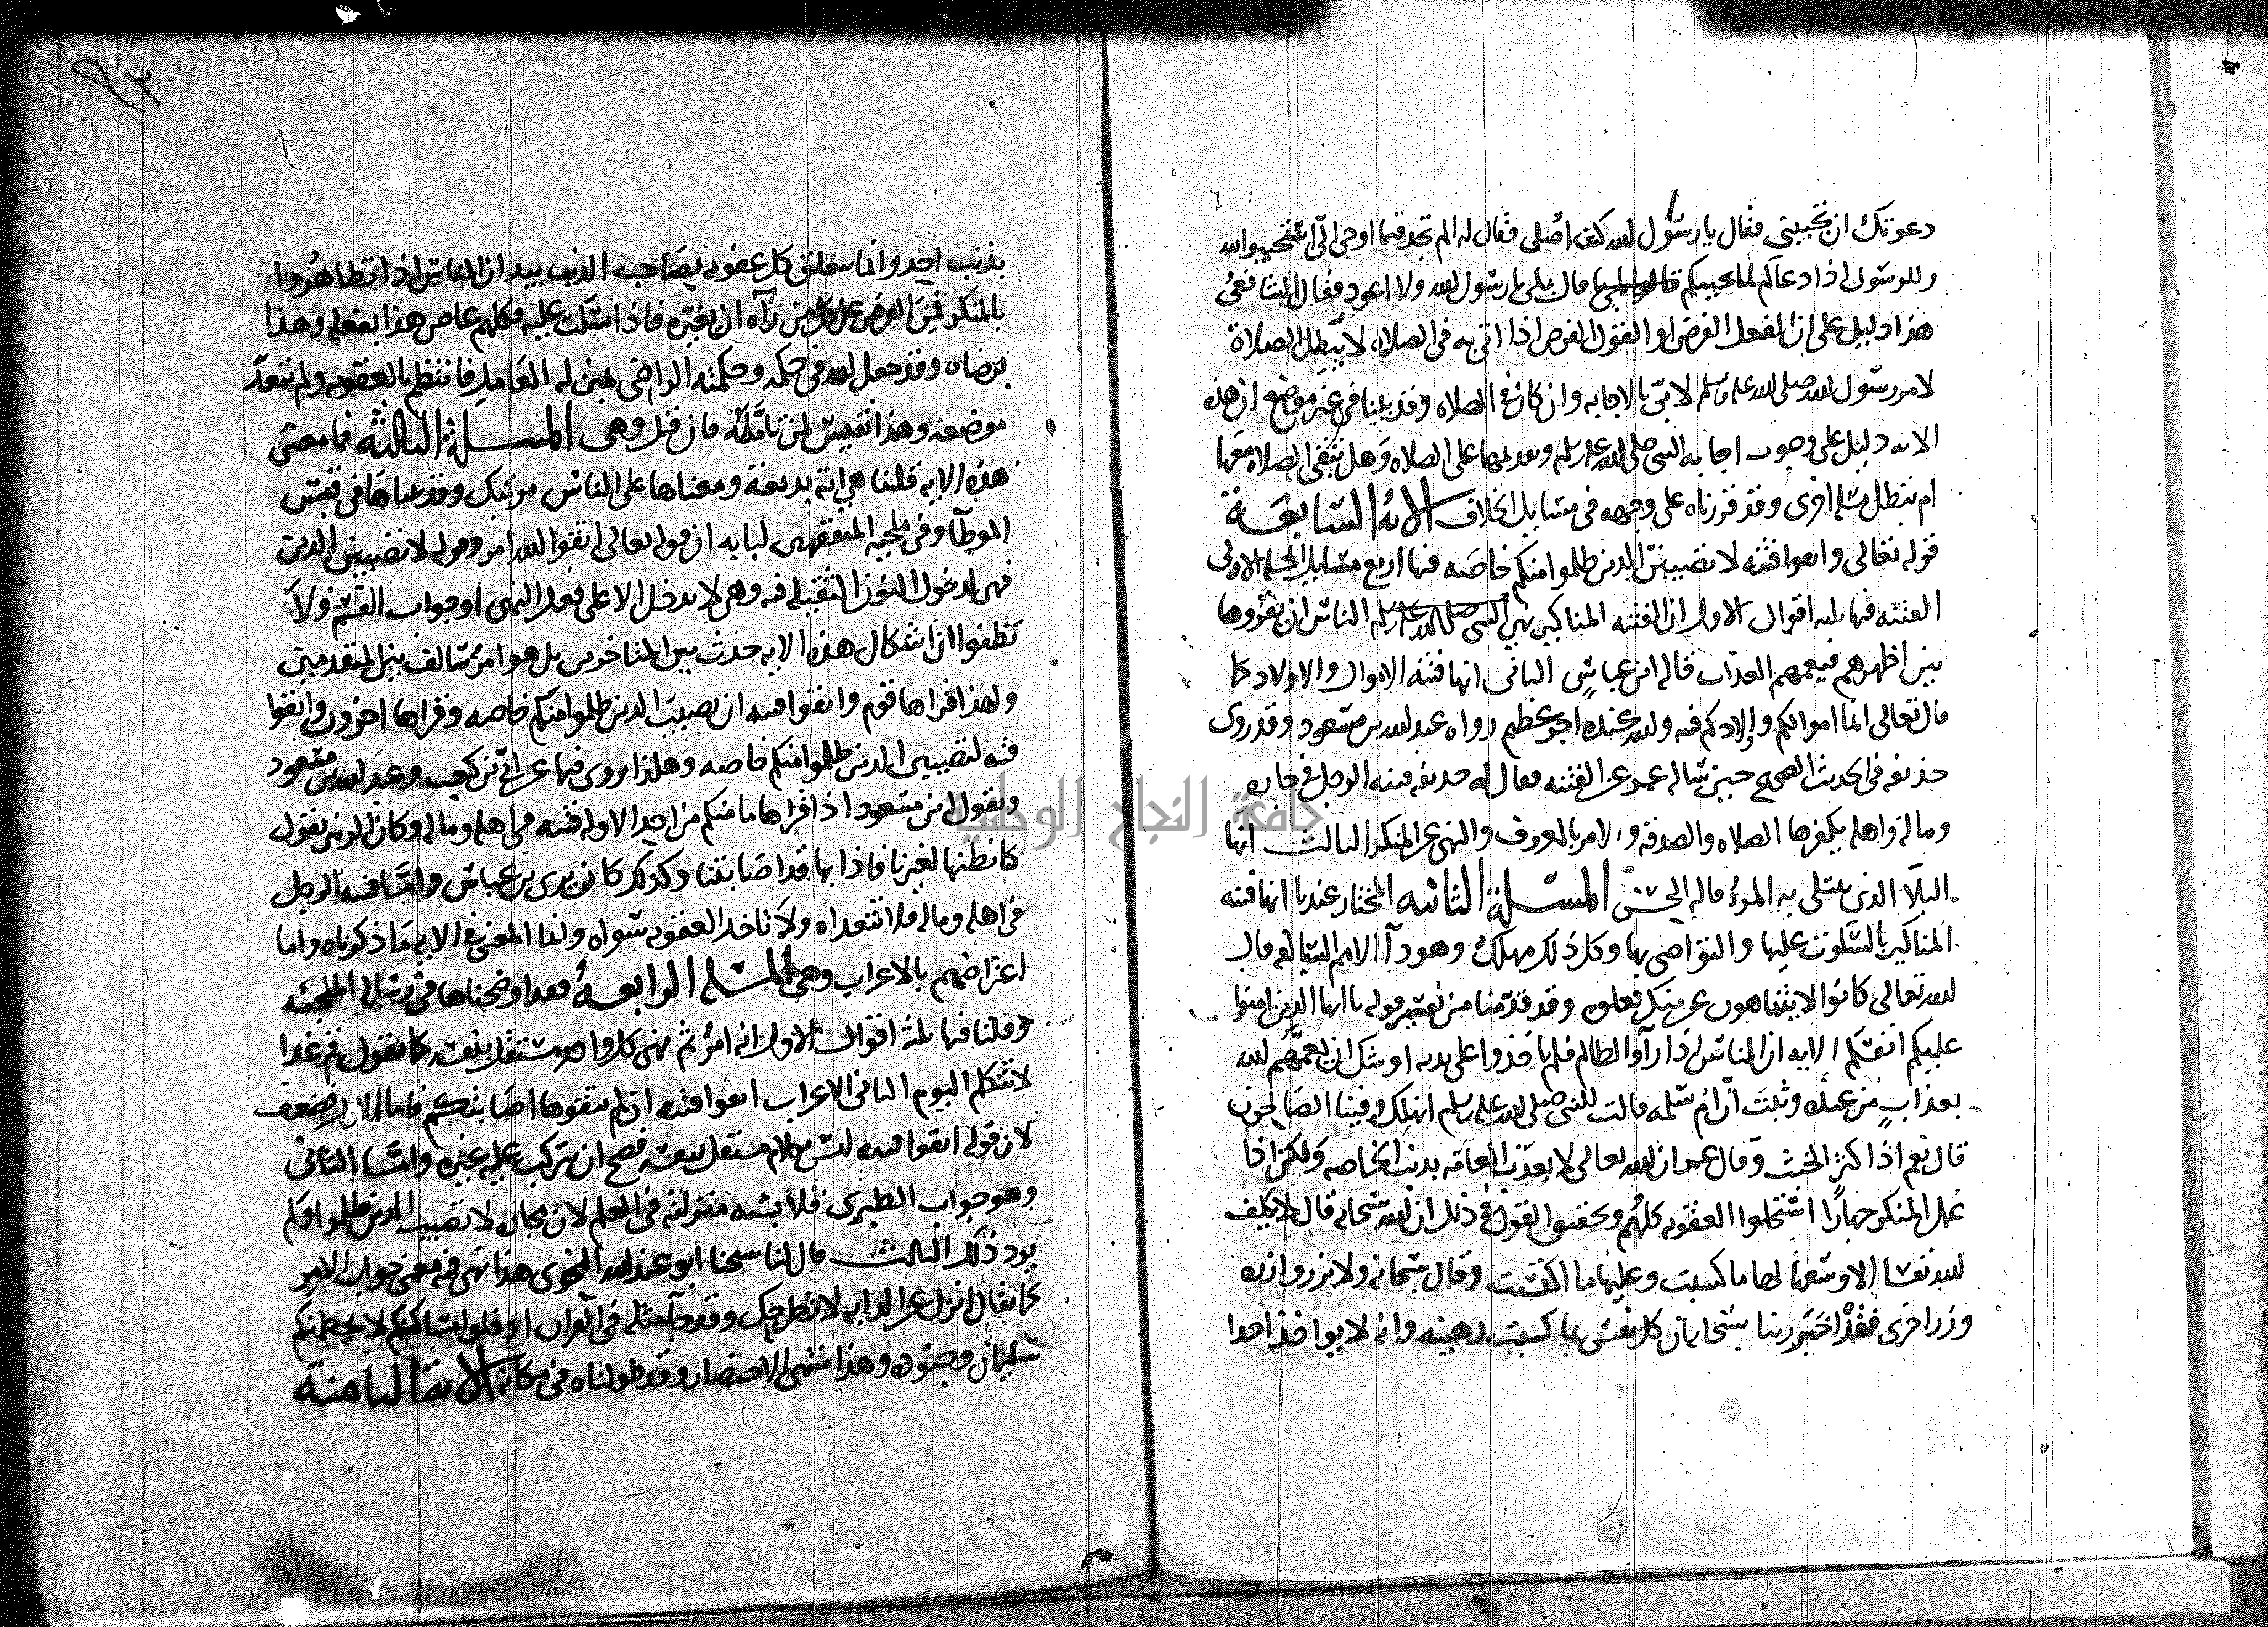 دعوتك ان تجيبني فقال يا رسول الله كنت اصلي فقال له الم تجد فيما اوحي الي استجيبوا لله
وللرسول اذا دعاكم لما يحييكم قال بلى يا رسول الله ولا اعود فقال الشافعي
هذا دليل على ان الفعل الفرض او القول الفرض اذا اتى به في الصلاة لا تبطل الصلاة
لامر رسول الله صلى الله عليه وسلم لابي بالاجابة وان كان في الصلاة وقد بينا في غير موضع ان هذه
الاية دليل على وجوب اجابة النبي صلى الله عليه وسلم وتقديمها على الصلاة وهل تبقى الصلاة معها
ام تبطل مسلة اخرى وقد قررناه على وجهه في مسايل الخلاف الاية السابعة
قوله تعالى واتقوا فتنة لا تصيبن الذين ظلموا منكم خاصة فيها اربع مسايل المسلة الاولى
الفتنة فيها ثلثة اقوال الاول ان الفتنة المناكير نهى النبي صلى الله عليه وسلم الناس ان يقروها
بين اظهرهم فيعمهم العذاب قاله ابن عباس الثاني انها فتنة الاموال والاولاد كما
قال تعالى انما اموالكم واولادكم فتنة والله عنده اجر عظيم رواه عبد الله بن مسعود وقد روى
حذيفة في الحديث الصحيح حين ساله عمر عن الفتنة فقال له حذيفة فتنة الرجل في جاره
وماله واهله يكفرها الصلاة والصدقة والامر بالمعروف والنهي عن المنكر الثالث انها
البلاء الذي يبتلى به المرء قاله الحسن المسلة الثانية المختار عندنا انها فتنة
المناكير بالسكوت عليها والتراضي بها وكل ذلك مهلك وهو داء الامم السالفة قال
الله تعالى كانوا لا يتناهون عن منكر فعلوه وقد قدمنا من تفسير قوله يا ايها الذين امنوا
عليكم انفسكم الاية ان الناس اذا راوا الظالم فلم ياخذوا على يديه اوشك ان يعمهم الله
بعذاب من عنده وثبت ان ام سلمة قالت للنبي صلى الله عليه وسلم انهلك وفينا الصالحون
قال نعم اذا كثر الخبث وقال عمر ان الله تعالى لا يعذب العامة بذنب الخاصة ولكن اذا
عمل المنكر جهارا استحلوا العقوبة كلهم وتحقيق القول في ذلك ان الله سبحانه قال لا يكلف
الله نفسا الا وسعها لها ما كسبت وعليها ما اكتسبت وقال سبحانه ولا تزر وازرة
وزر اخرى فقد اخبر ربنا سبحانه ان كل نفس بما كسبت رهينة وانه لا يواخذ احدا
بذنب احد وانما تتعلق كل عقوبة بصاحب الذنب بيد ان الناس اذا تظاهروا
بالمنكر فمن الفرض على كل من رآه ان يغيره فاذا سكت عليه فكلهم عاص هذا بفعله وهذا
برضاه وقد جعل الله في حكمه وحكمته الراضي بمنزلة العامل فانتظم بالعقوبة ولم تتعد
موضعه وهذا نفيس لمن تامله فان قيل وهي المسلة الثالثة فما معنى
هذه الاية قلنا هي آية بديعة ومعناها على الناس مرتبك وقد بيناها في قبس
الموطآ وفي ملجية المتفقهين لبابه ان قوله تعالى اتقوا الله امر وقوله لا تصيبن الذين
نهي لدخول النون الثقيلة فيه وهي لا تدخل الا على فعل النهي او جواب القسم ولا
تظنوا ان اشكال هذه الاية حدث بين المتاخرين بل هو امر سالف بين المتقدمين
ولهذا قراها قوم واتقوا فتنة ان تصيب الذين ظلموا منكم خاصة وقراها اخرون واتقوا
فتنة لتصيبن الذين ظلموا منكم خاصة وهكذا يروى فيها عن ابي بن كعب وعبد الله بن مسعود
ويقول ابن مسعود اذا قراها ما منكم من احد الا وله فتنة في اهله وماله وكان الزبير يقول
كنا نظنها لغيرنا فاذا بها قد اصابتنا وكذلك كان يرى بن عباس واما فتنة الرجل
في اهله وماله فلا تتعداه ولا تاخذ العقوبة سواه وانما المعنى في الاية ما ذكرناه واما
اعتراضهم بالاعراب وهي المسلة الرابعة فقد اوضحناها في رسالة الملجئة
وقلنا فيها ثلثة اقوال الاول انه امر ثم نهي كل واحد مستقل بنفسه كما تقول قم غدا
لا تتكلم اليوم الثاني الاعراب اتقوا فتنة ان لم تتقوها اصابتكم فاما الاول فضعيف
لان قوله اتقوا فتنة ليس بكلام مستقل بنفسه فصح ان يتركب عليه غيره واما الثاني
وهو جواب الطبري فلا يشبه منزلته في العلم لان مجازه لا تصيب الذين ظلموا ولم
يرد ذلك الثالث قال لنا شيخنا ابو عبد الله النحوي هذا نهي فيه معنى جواب الامر
كما يقال انزل عن الدابة لا تطرحنك وقد جاء مثله في القرآن ادخلوا مساكنكم لا يحطمنكم
سليمان وجنوده وهذا منتهى الاختصار وقد طولناه في مكانه الاية الثامنة
جامعة النجاح الوطنية